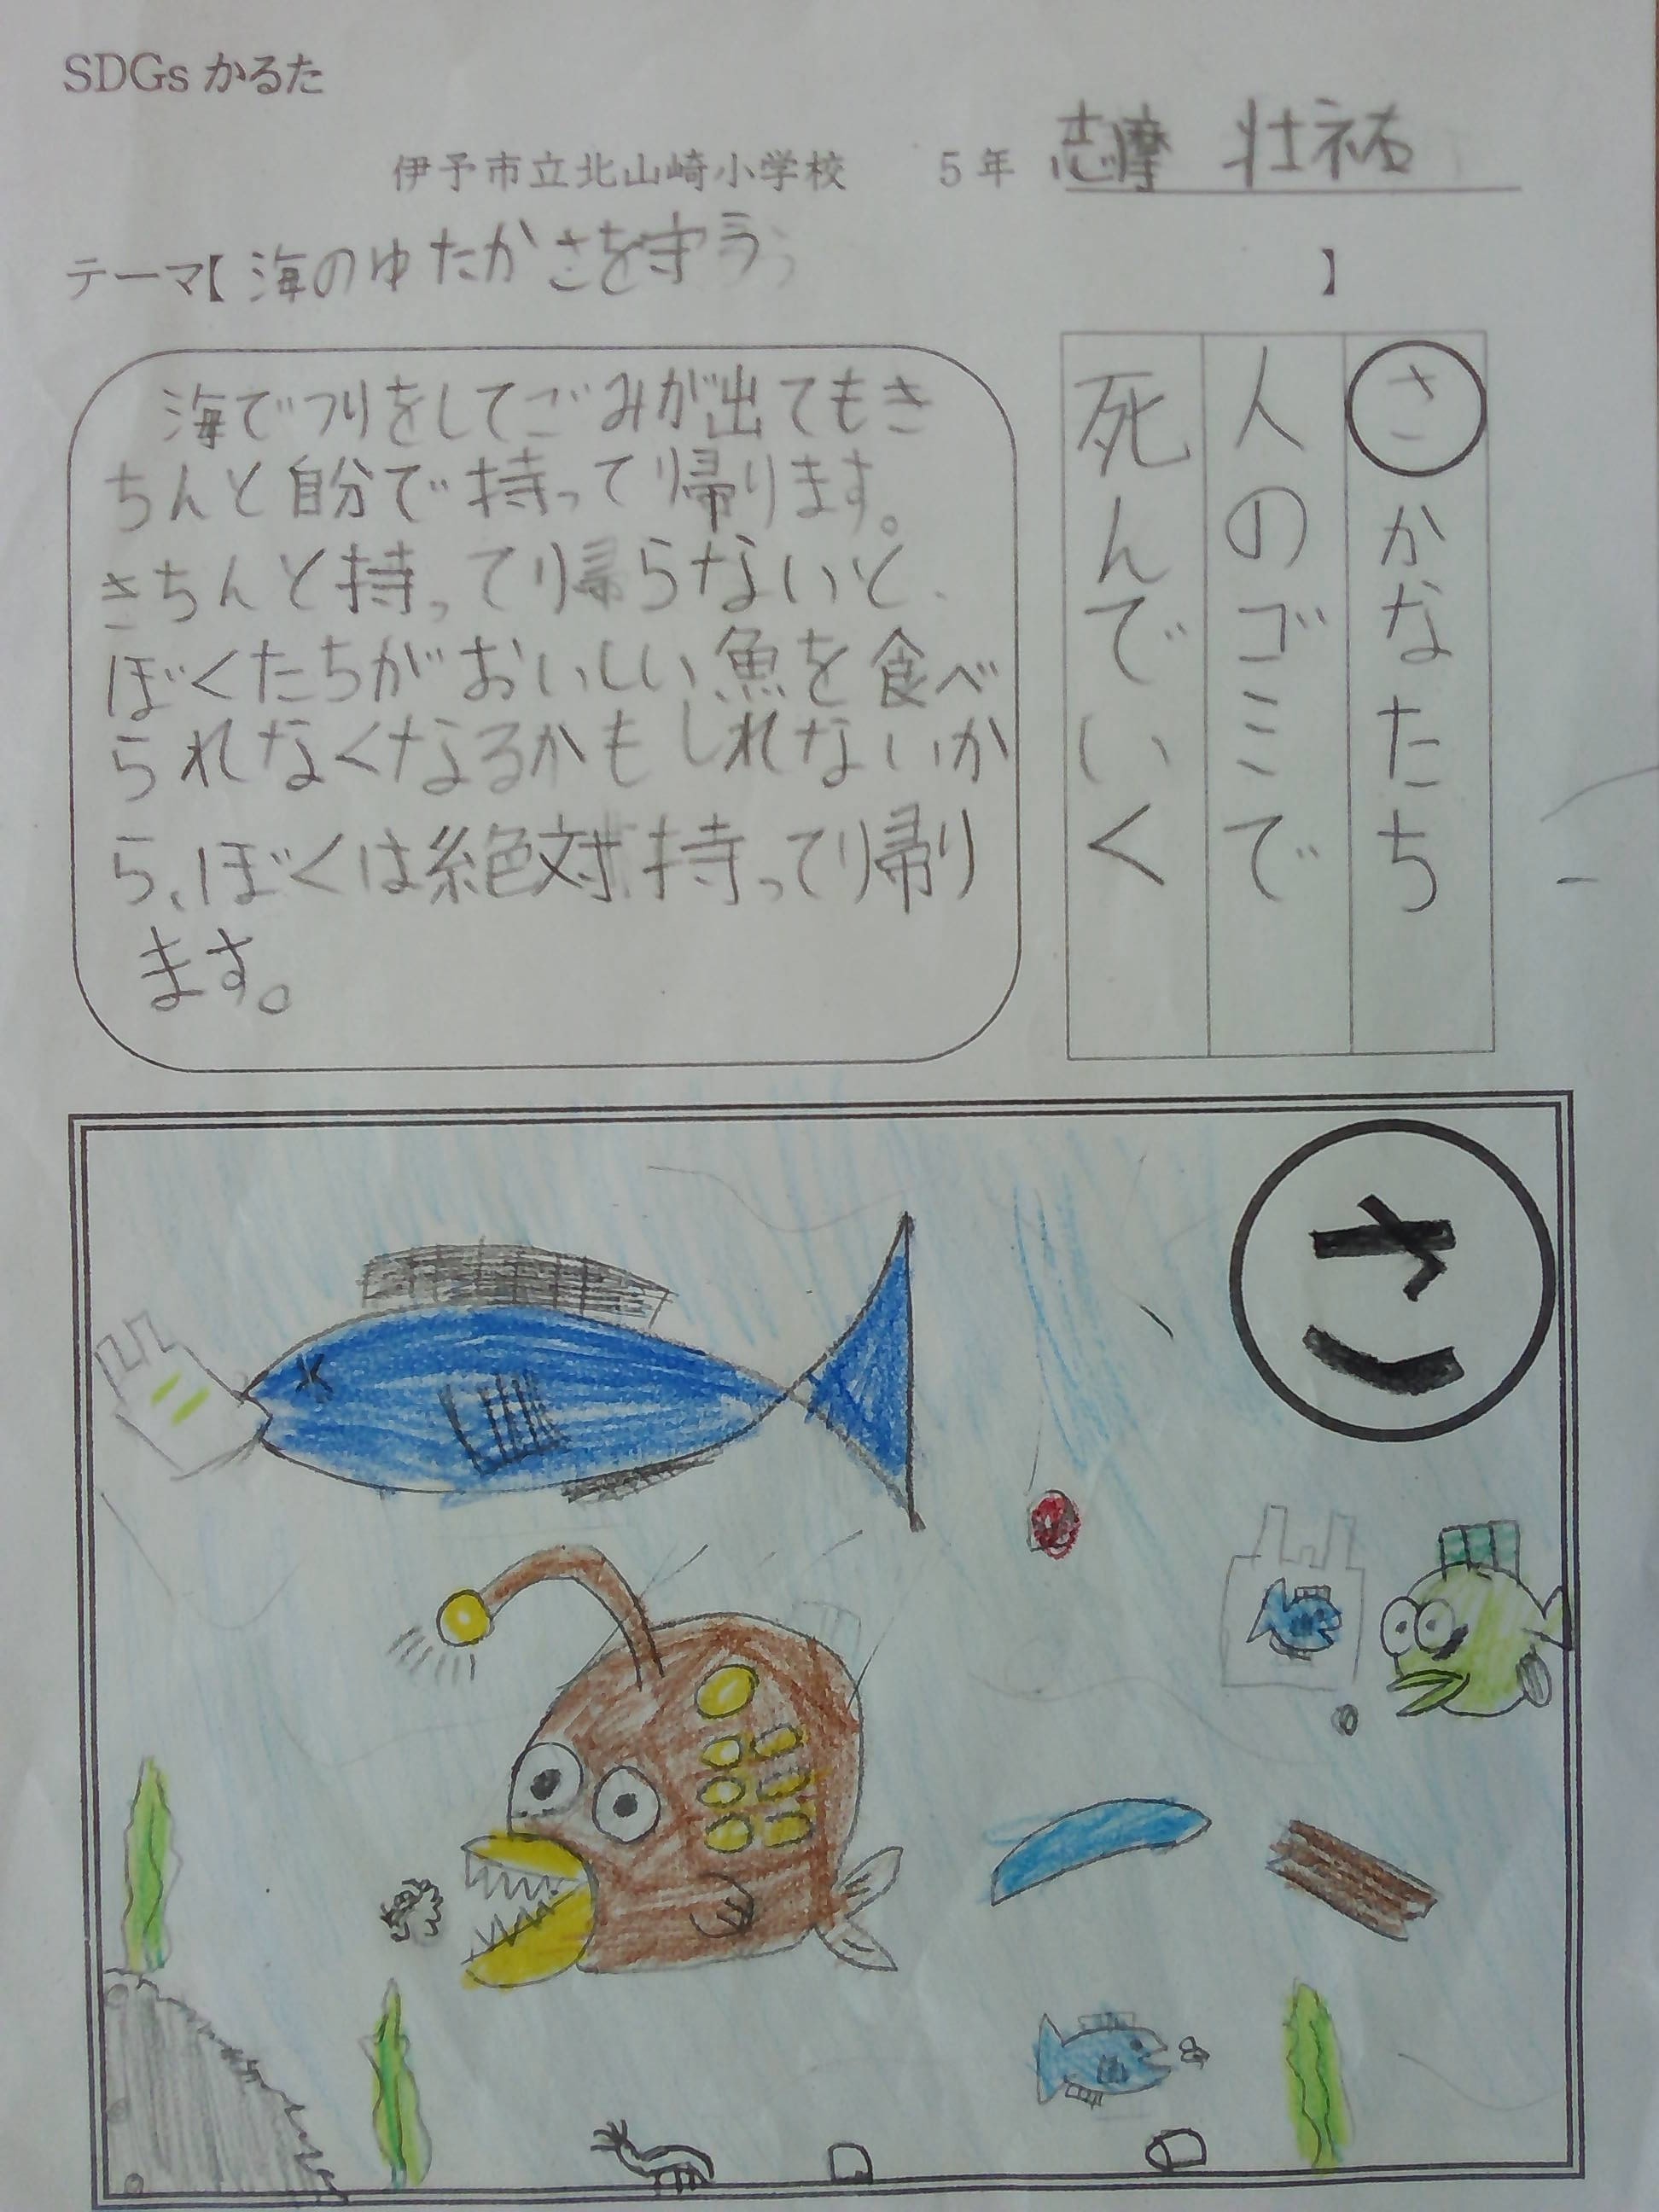 SDGsかるた
伊予市立北山崎小学校 5年 志摩 壮祐
テーマ【海のゆたかさを守ろう】
さかなたち
人のゴミで
死んでいく
海でつりをしてごみが出てもき
ちんと自分で持って帰ります。
きちんと持って帰らないと、
ぼくたちがおいしい魚を食べ
られなくなるかもしれないか
ら、ぼくは絶対持って帰り
ます。
さ